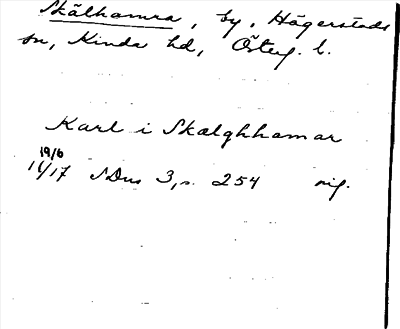 Skälhamra, by, Hägerstads
sn, Kinda hd, Österg. l.
Karl i Skalghhamar
19/6
1417 SDns 3, s. 254 orig.